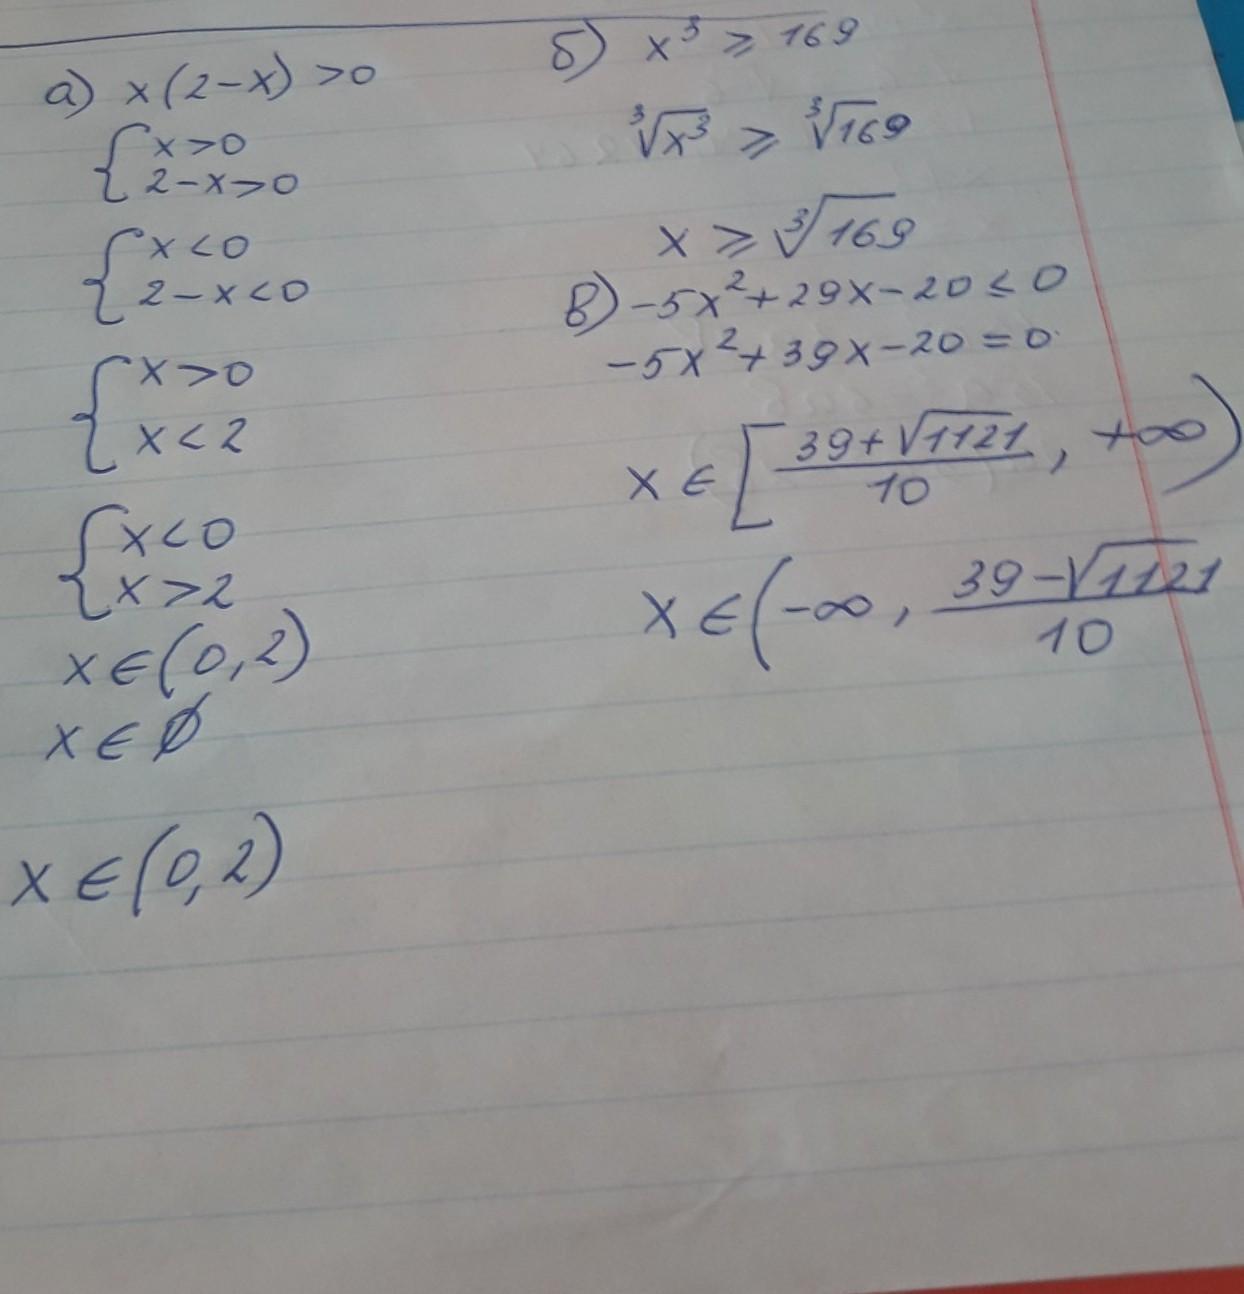 а) x(2-x) >0
{ x>0
2-x>0
{ x<0
2-x<0
{ x>0
x<2
{ x<0
x>2
x∈(0,2)
x∈∅
x∈(0,2)
б) x³ ⩾ 169
∛x³ ⩾ ∛169
x ⩾ ∛169
в) -5x²+29x-20≤0
-5x²+39x-20=0
x∈[ (39+√1121)/10 , +∞)
x∈(-∞, (39-√1121)/10